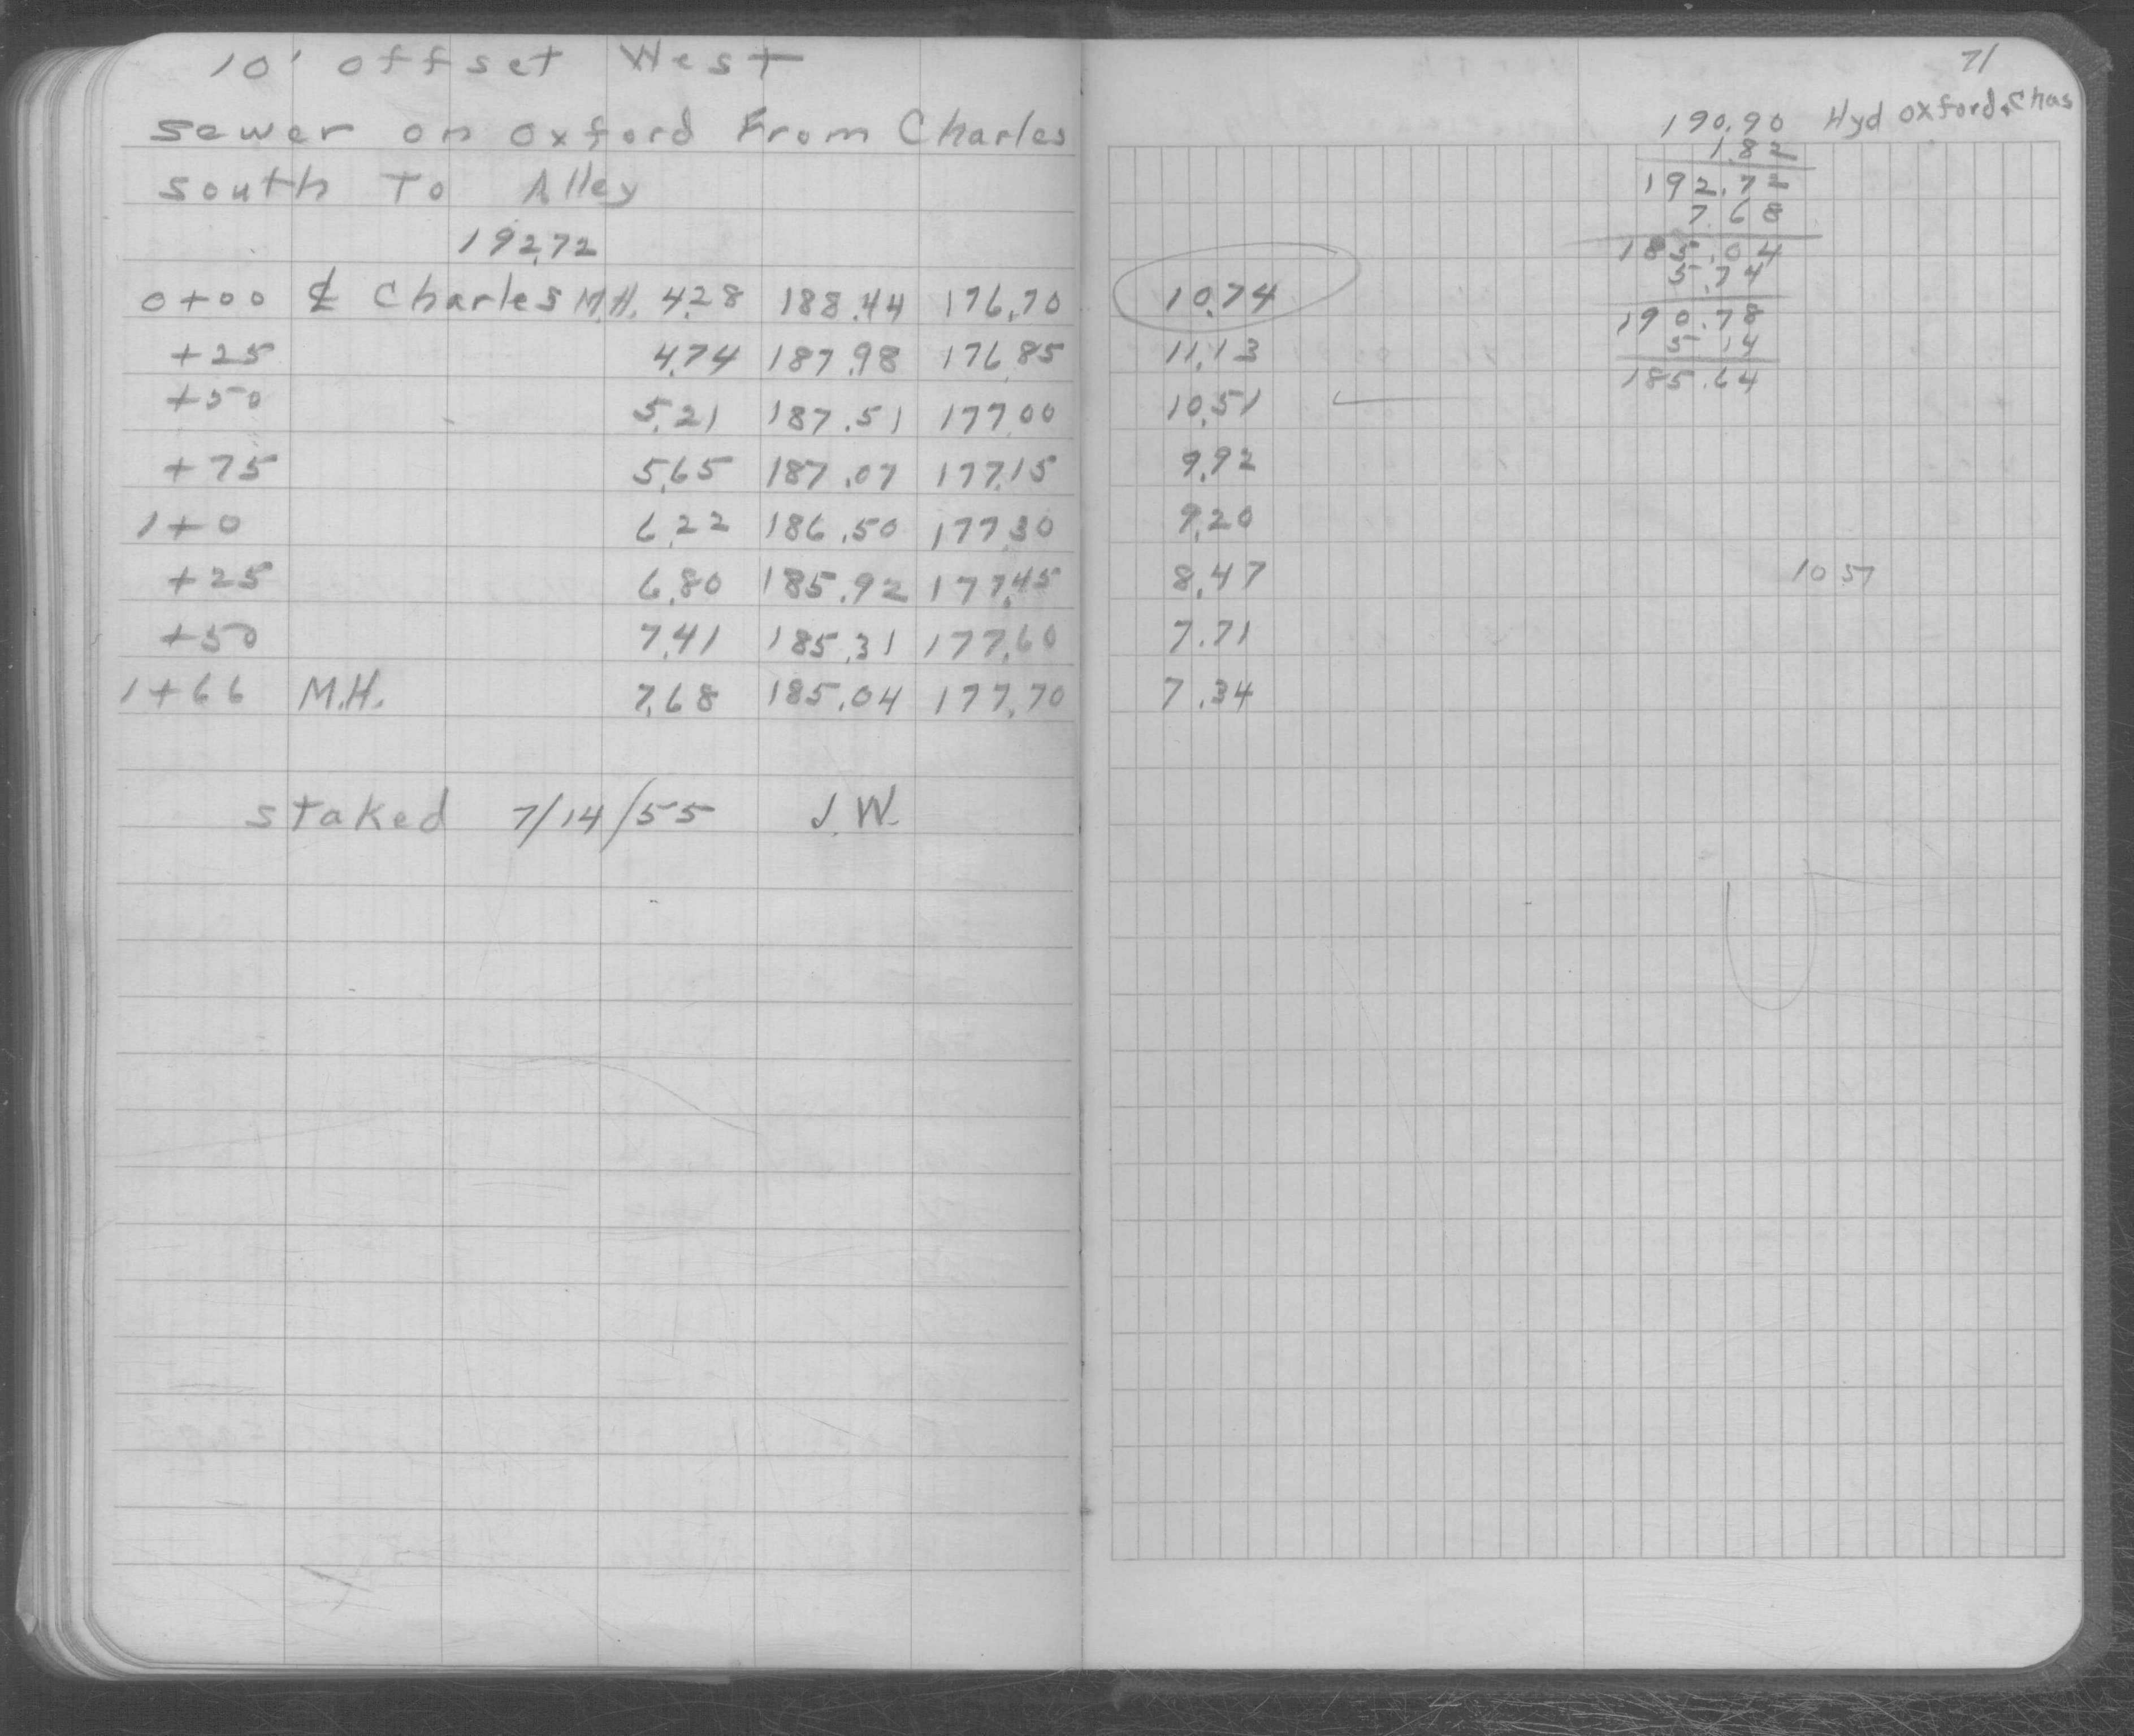 10' offset West
sewer on oxford From Charles
south To Alley
192.72
0+00 ℄ Charles M.H. 4.28 188.44 176.70 10.74
+25 4.74 187.98 176.85 11.13
+50 5.21 187.51 177.00 10.51
+75 5.65 187.07 177.15 9.92
1+0 6.22 186.50 177.30 9.20
+25 6.80 185.92 177.45 8.47
+50 7.41 185.31 177.60 7.71
1+66 M.H. 7.68 185.04 177.70 7.34
staked 7/14/55 J.W.
71
190.90 Hyd oxford & Chas
1.82
192.72
7.68
185.04
5.74
190.78
5.14
185.64
10.57